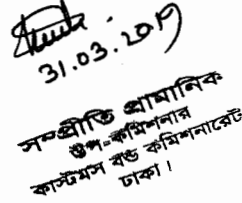 31.03.2019
সম্প্রীতি প্রামানিক
উপ-কমিশনার
কাস্টমস বন্ড কমিশনারেট
ঢাকা।